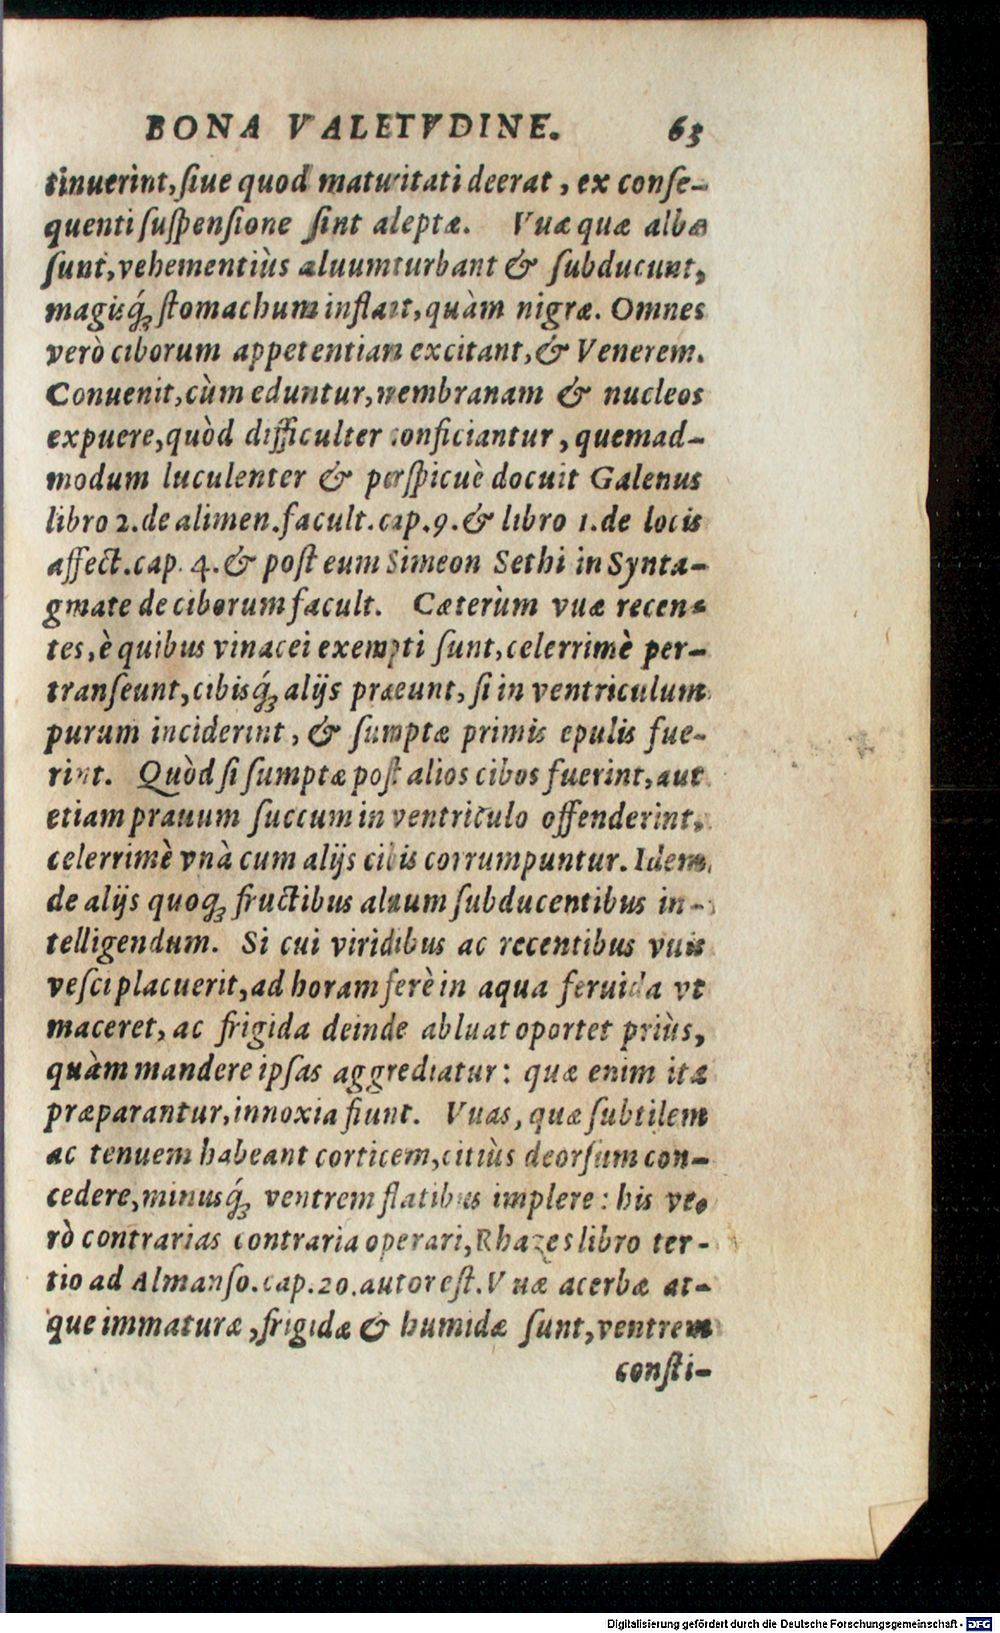 BONA VALETVDINE. 63
tinuerint, ſiue quod maturitati deerat, ex conſe-
quenti ſuſpenſione ſint aleptæ. Vuæ quæ albæ
ſunt, vehementiùs aluum turbant & ſubducunt,
magisq́ꝫ ſtomachum inflant, quàm nigræ. Omnes
verò ciborum appetentiam excitant, & Venerem.
Conuenit, cùm eduntur, membranam & nucleos
expuere, quòd difficulter conficiantur, quemad-
modum luculenter & perſpicuè docuit Galenus
libro 2. de alimen. facult. cap. 9. & libro 1. de locis
affect. cap. 4. & poſt eum Simeon Sethi in Synta-
gmate de ciborum facult. Cæterùm vuæ recen-
tes, è quibus vinacei exempti ſunt, celerrimè per-
tranſeunt, cibisq́ꝫ alijs præeunt, ſi in ventriculum
purum inciderint, & ſumptæ primis epulis fue-
rint. Quòd ſi ſumptæ poſt alios cibos fuerint, aut
etiam prauum ſuccum in ventriculo offenderint,
celerrimè vnà cum alijs cibis corrumpuntur. Idem
de alijs quoqꝫ fructibus aluum ſubducentibus in-
telligendum. Si cui viridibus ac recentibus vuis
veſci placuerit, ad horam ferè in aqua feruida vt
maceret, ac frigida deinde abluat oportet priùs,
quàm mandere ipſas aggrediatur: quæ enim ita
præparantur, innoxia fiunt. Vuas, quæ ſubtilem
ac tenuem habeant corticem, citiùs deorſum con-
cedere, minusq́ꝫ ventrem flatibus implere: his ve-
rò contrarias contraria operari, Rhazes libro ter-
tio ad Almanſo. cap. 20. autor eſt. Vuæ acerbæ at-
que immaturæ, frigidæ & humidæ ſunt, ventrem
conſti-
Digitalisierung gefördert durch die Deutsche Forschungsgemeinschaft - DFG